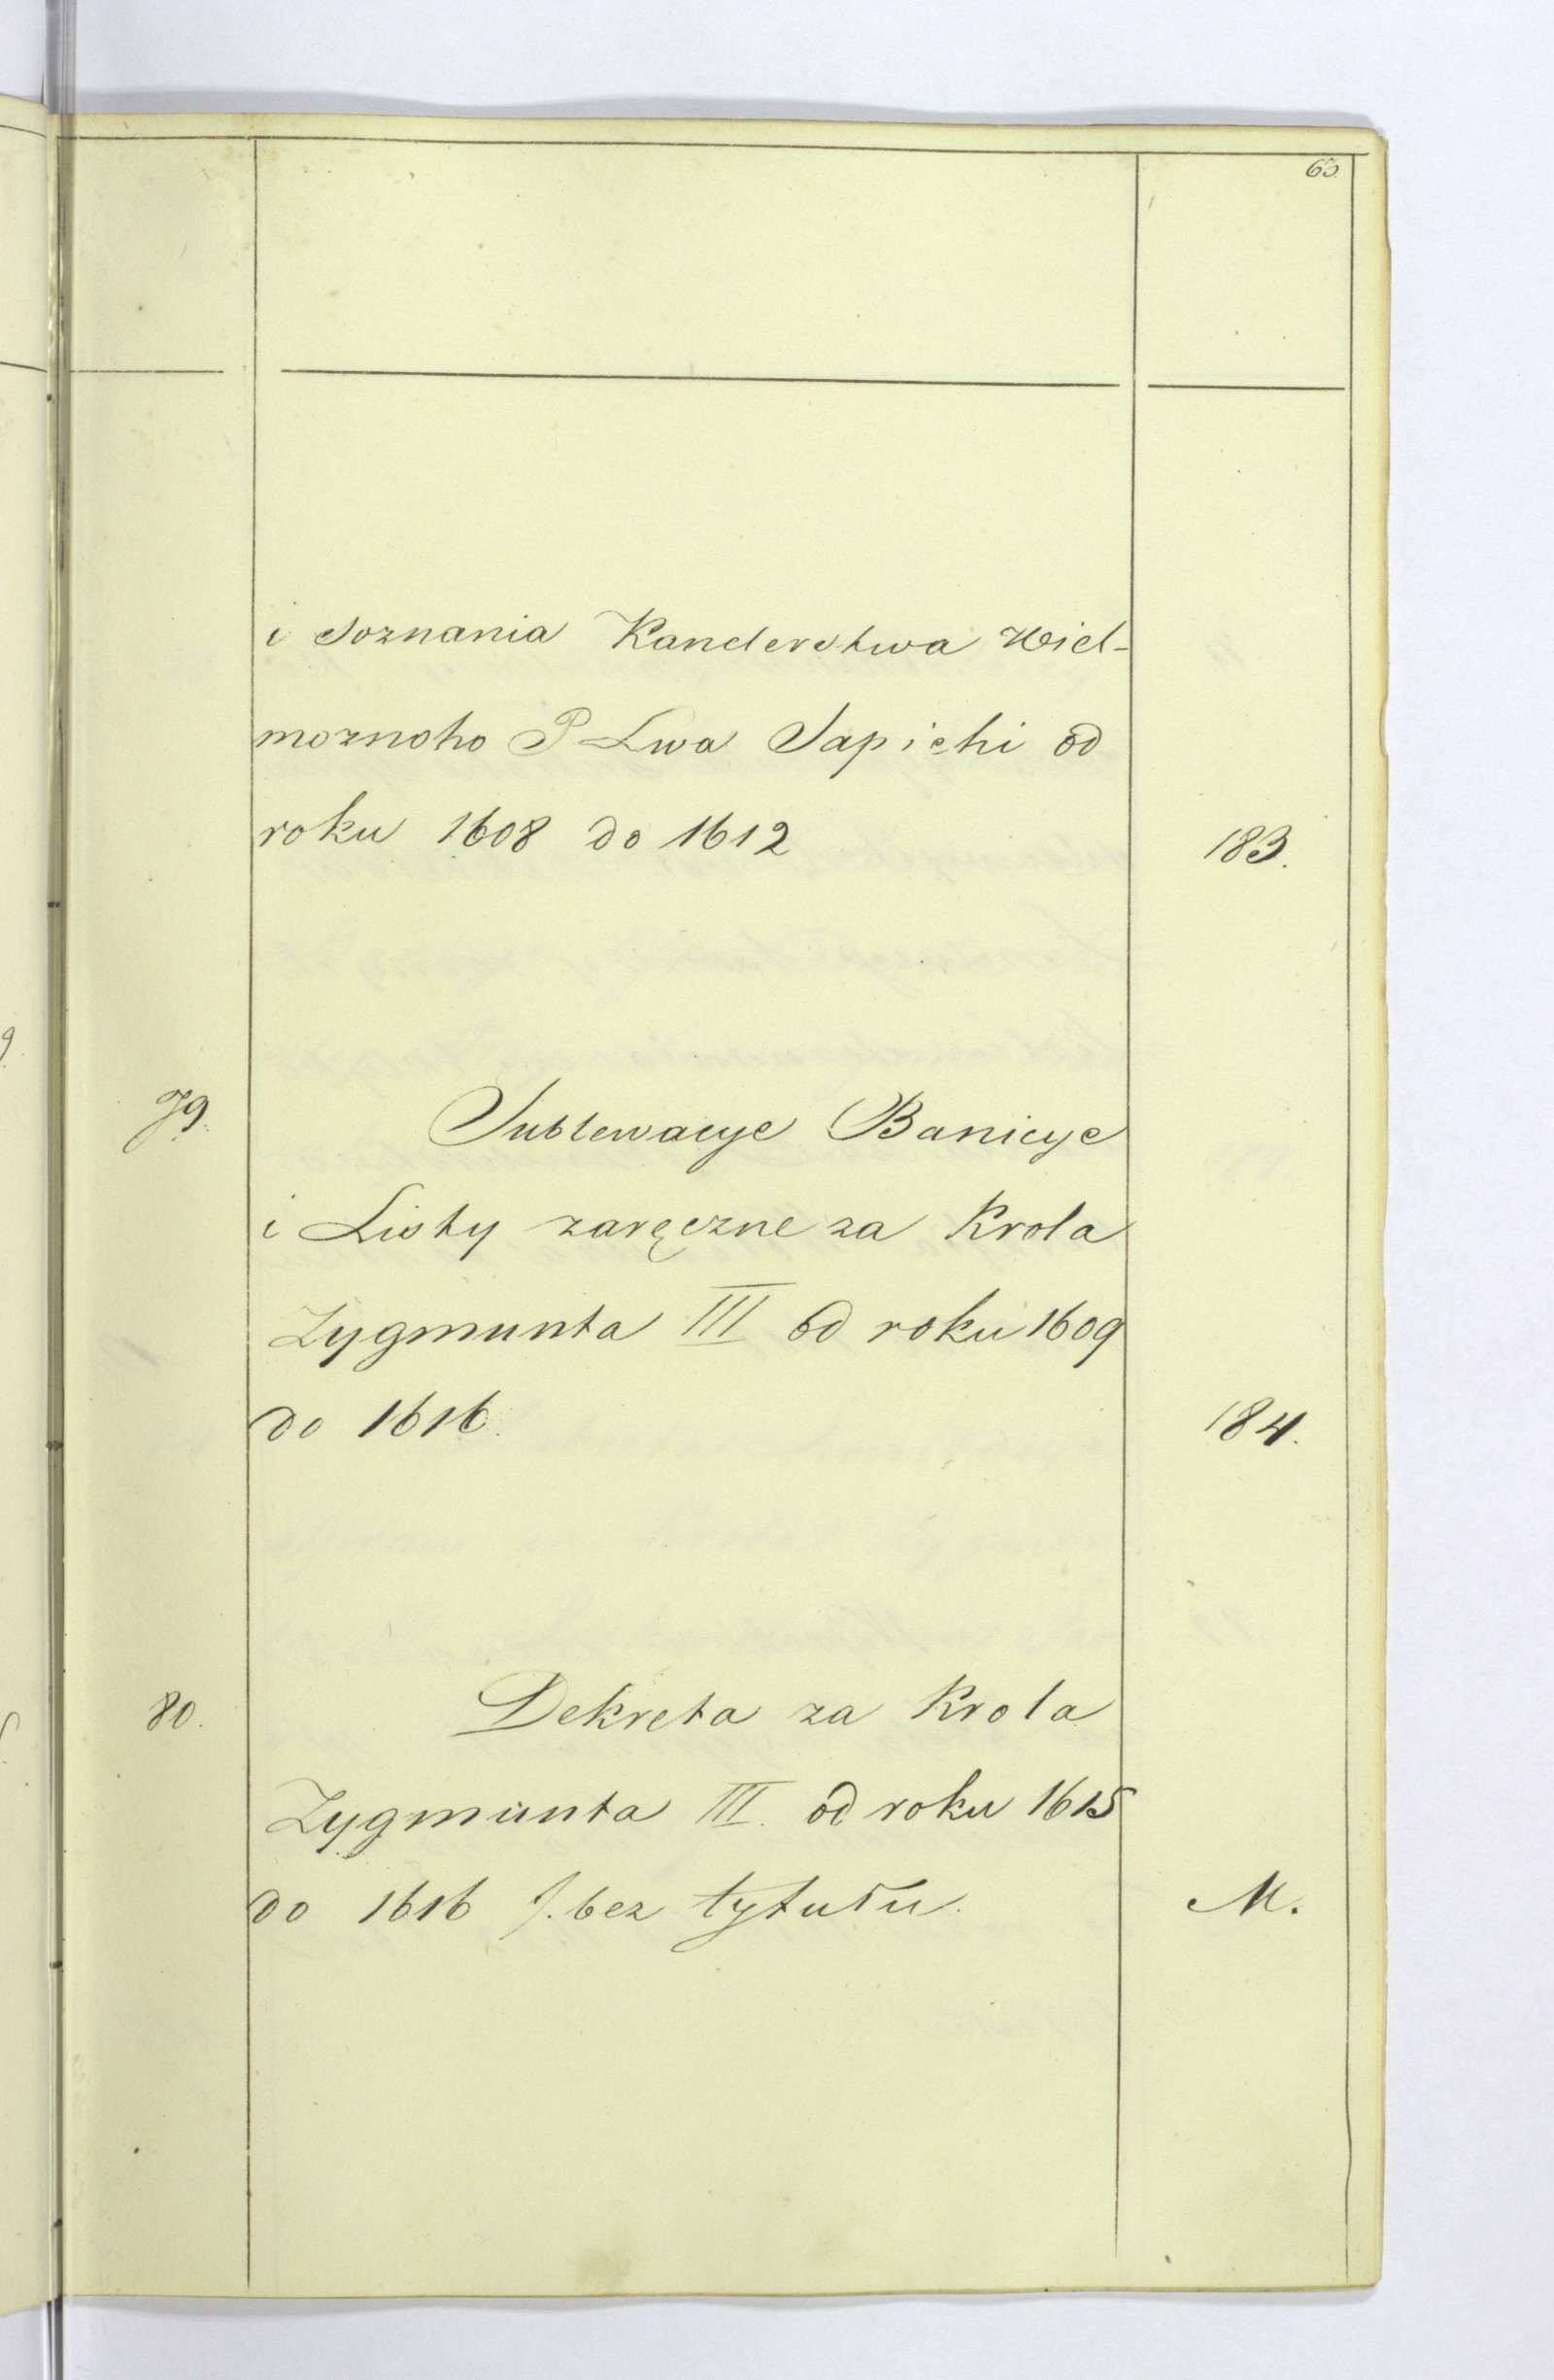 63.
i Soznania Kanclerstwa Wiel-
moznoho P Lwa Sapiehi od
roku 1608 do 1612
183.
79.
Sublewacye Banicye
i Listy zaręczne za Krola
Zygmunta III od roku 1609
do 1616.
184.
80.
Dekreta za Krola
Zygmunta III. od roku 1615
do 1616 /. bez tytułu.
M.